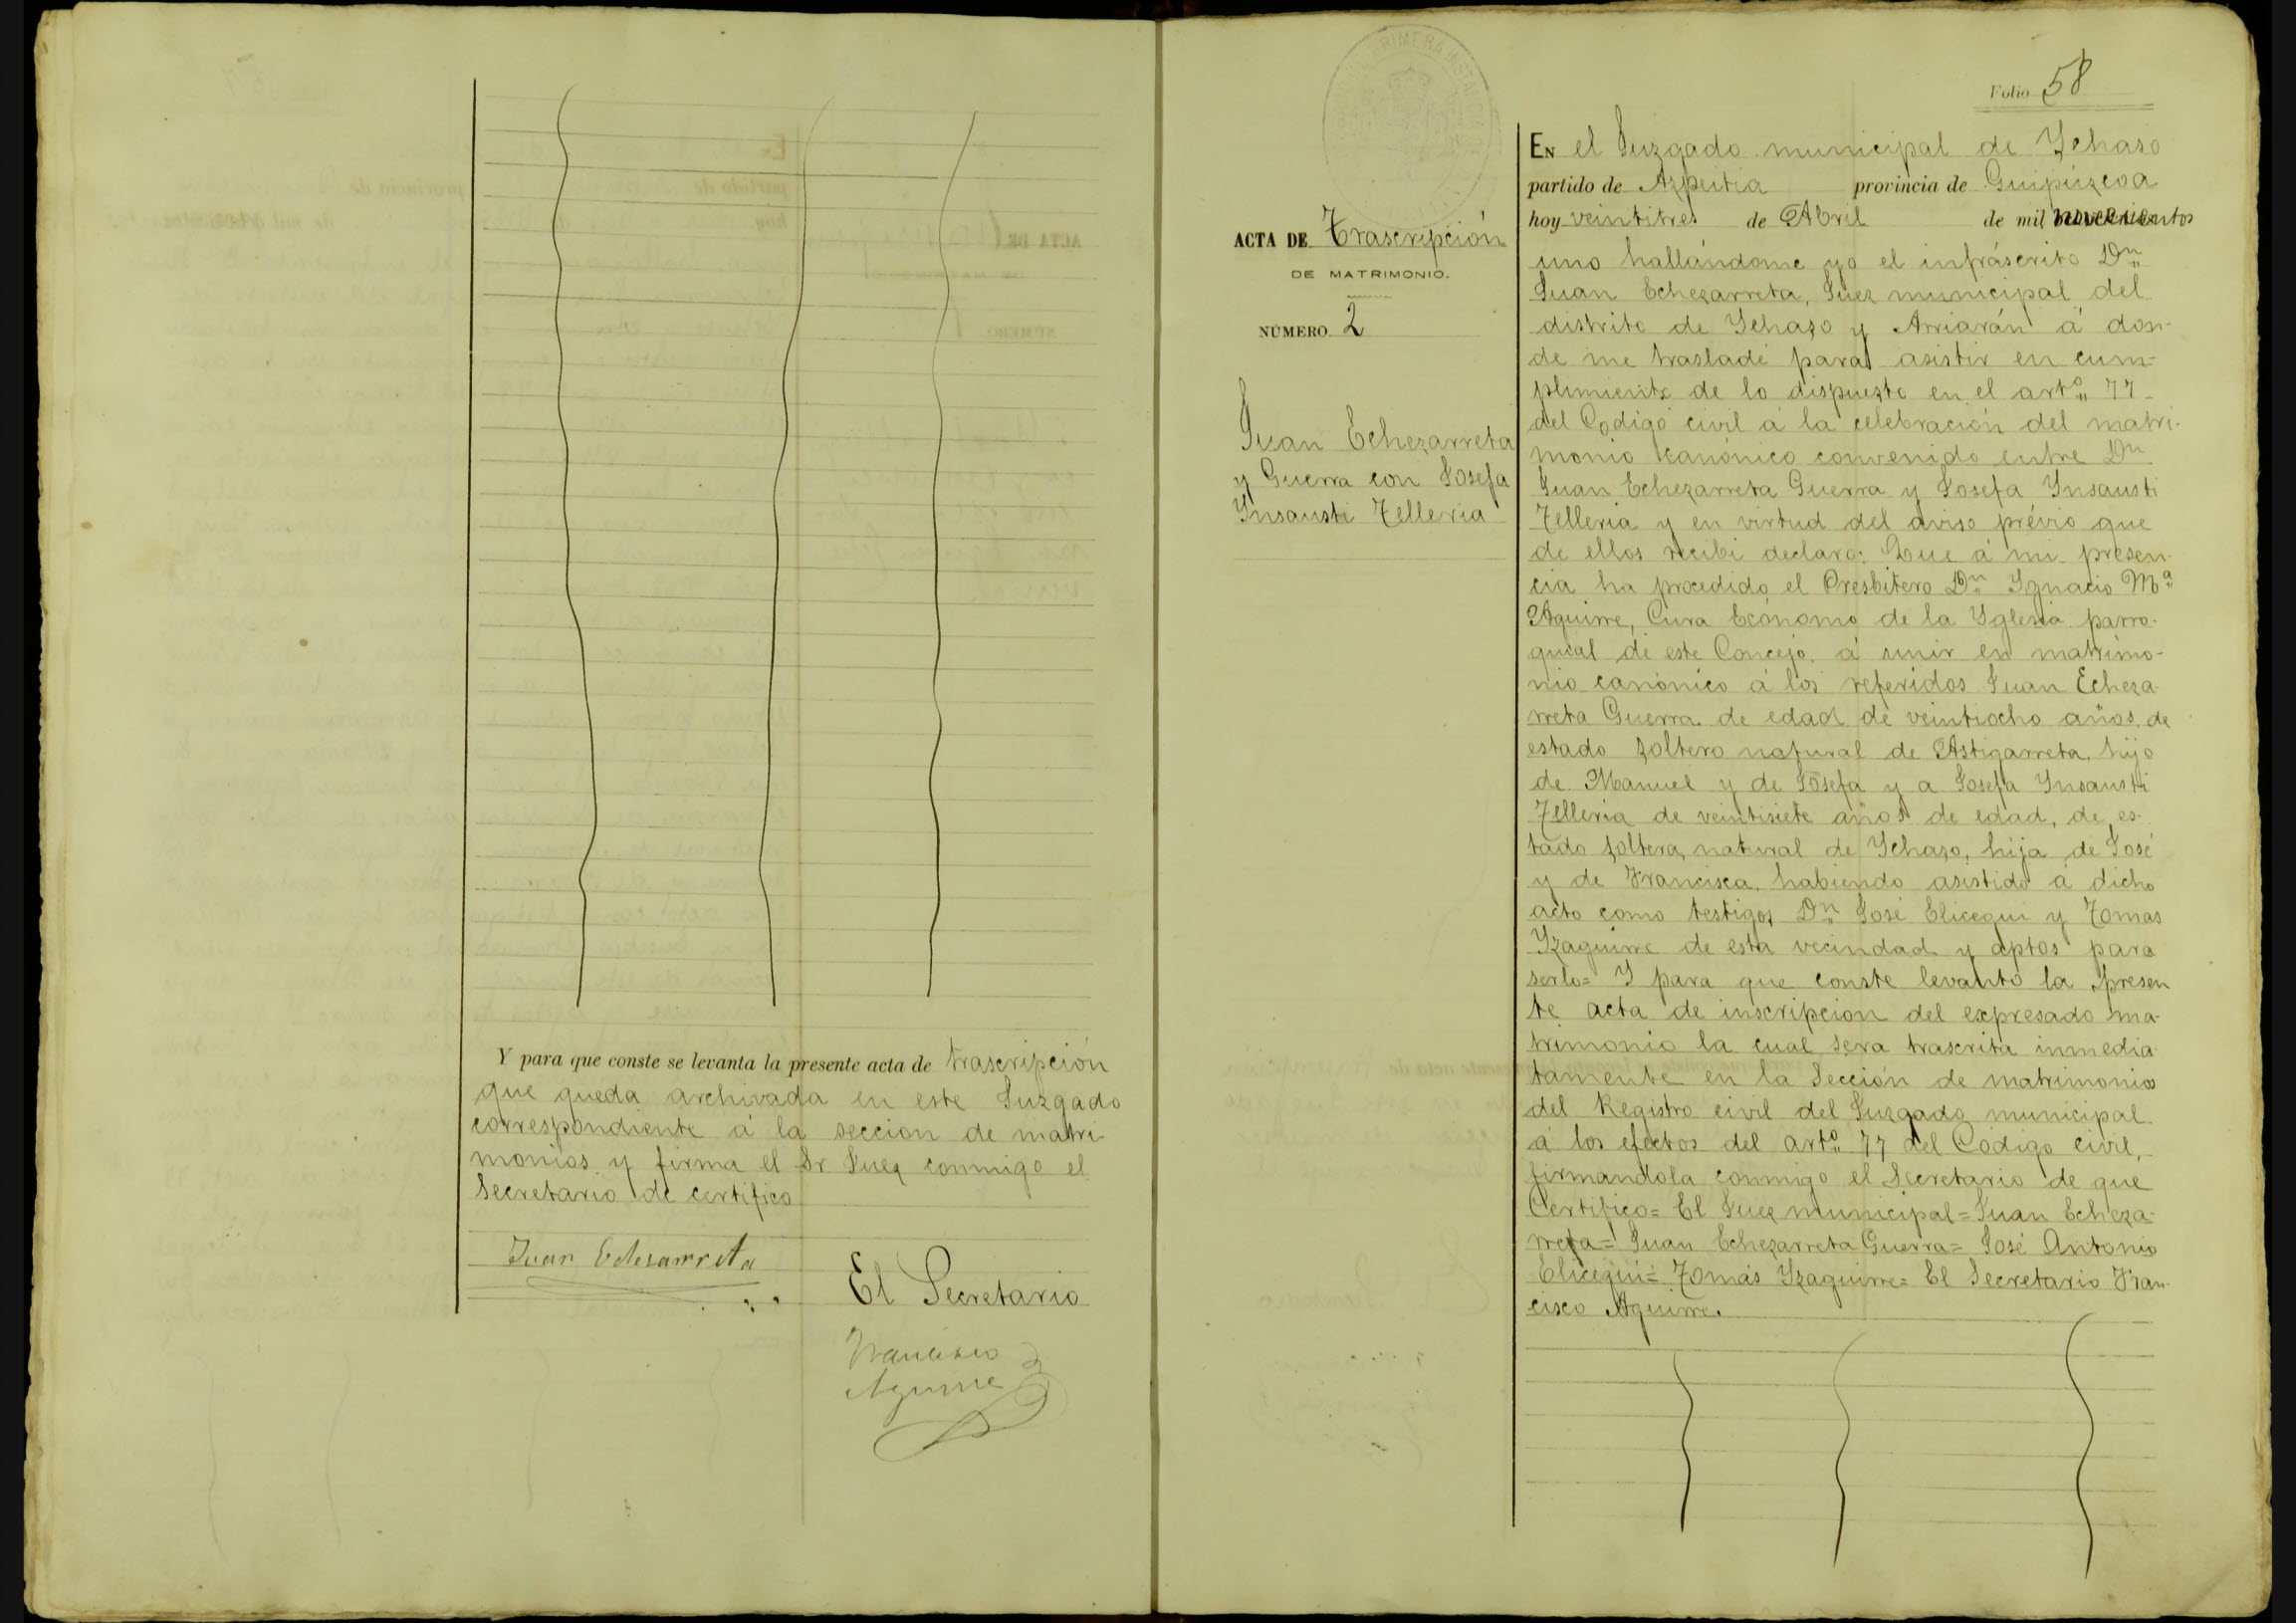 Y para que conste se levanta la presente acta de trascripción
que queda archivada en este Juzgado
correspondiente á la seccion de matri-
monios y firma el Sr Juez conmigo el
Secretario de certifico
Juan Echezarreta
El Secretario
Francisco
Aguirre
Folio 58
ACTA DE Trascripción
DE MATRIMONIO.
NÚMERO 2
Juan Echezarreta
y Guerra con Josefa
Ynsausti Telleria
En el Juzgado municipal de Ychaso
partido de Azpeitia provincia de Guipúzcoa
hoy veintitres de Abril de mil novecientos
uno hallándome yo el infráscrito Dn
Juan Echezarreta, Juez municipal del
distrito de Ychaso y Arriarán á don-
de me trasladé para asistir en cum-
plimiento de lo dispuesto en el artº 77
del Codigo civil á la celebración del matri-
monio canónico convenido entre Dn
Juan Echezarreta Guerra y Josefa Ynsausti
Telleria y en virtud del aviso prévio que
de ellos recibi declaro: Que á mi presen-
cia ha procedido el Presbitero Dn Ygnacio Mª
Aguirre, Cura Ecónomo de la Yglesia parro-
quial de este Concejo á unir en matrimo-
nio canónico á los referidos Juan Echeza-
rreta Guerra de edad de veintiocho años, de
estado soltero natural de Astigarreta, hijo
de Manuel y de Josefa y a Josefa Ynsausti
Telleria de veintisiete años de edad, de es-
tado soltera, natural de Ychaso, hija de José
y de Francisca, habiendo asistido á dicho
acto como testigos Dn José Elicegui y Tomas
Yzaguirre de esta vecindad y aptos para
serlo= Y para que conste levanto la presen
te acta de inscripcion del expresado ma-
trimonio la cual sera trascrita inmedia
tamente en la Sección de matrimonios
del Registro civil del Juzgado municipal
á los efectos del artº 77 del Código civil,
firmandola conmigo el Secretario de que
Certifico= El Juez municipal= Juan Echeza-
rreta= Juan Echezarreta Guerra= José Antonio
Elicegui= Tomás Yzaguirre= El Secretario Fran-
cisco Aguirre.